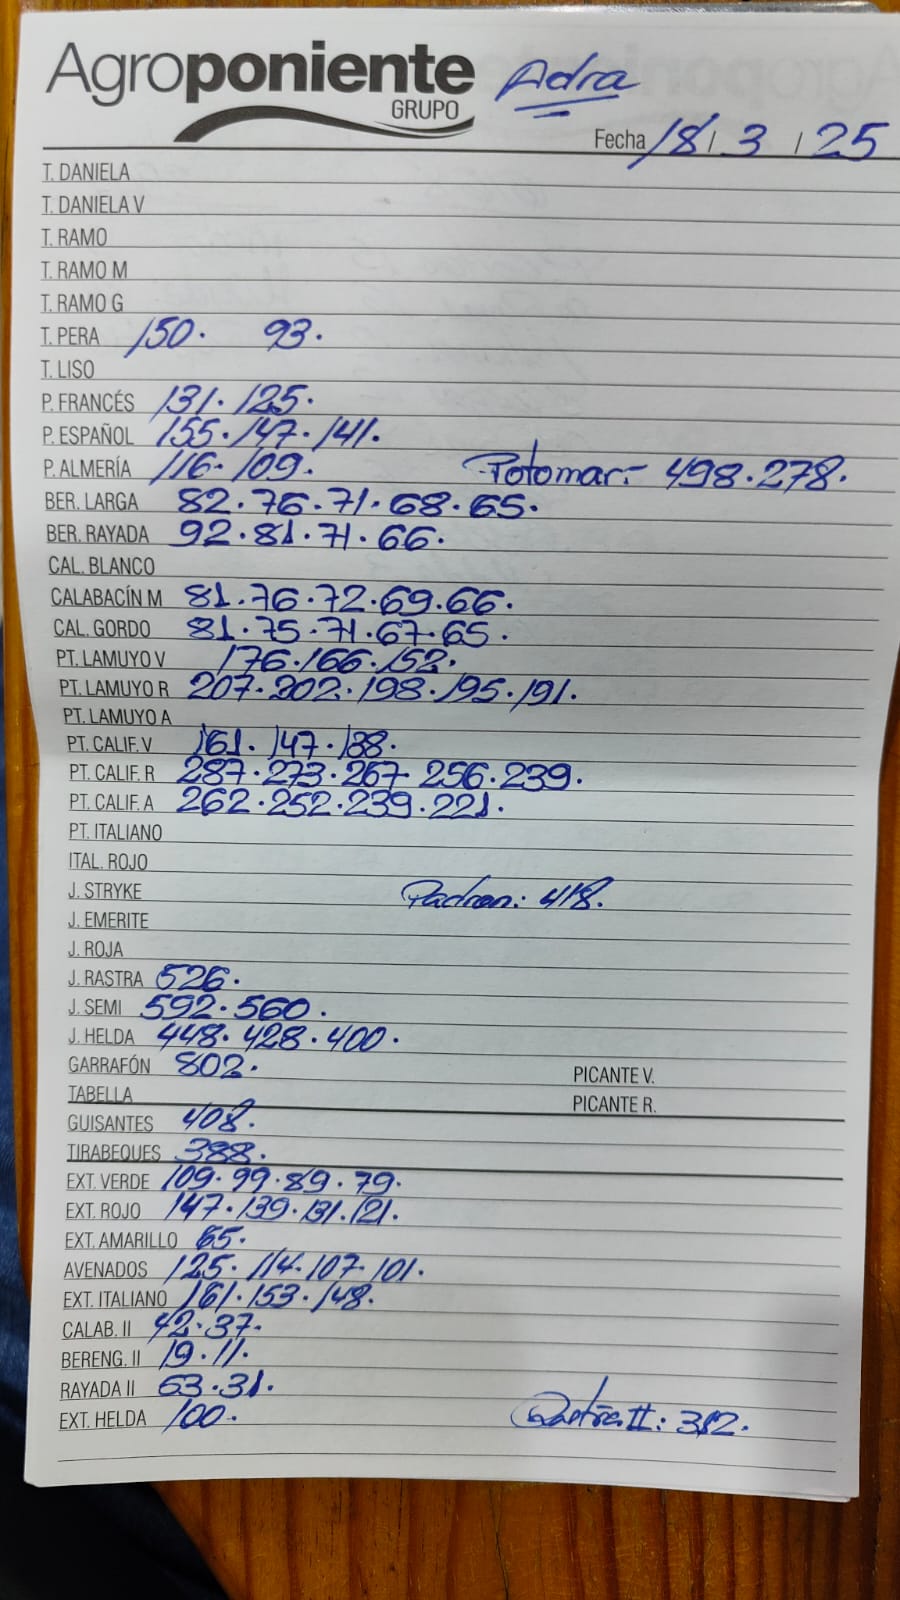 Agroponiente
GRUPO
Adra
Fecha 18/ 3 / 25
T. DANIELA
T. DANIELA V
T. RAMO
T. RAMO M
T. RAMO G
T. PERA 150. 93.
T. LISO
P. FRANCÉS 131. 125.
P. ESPAÑOL 155. 147. 141.
P. ALMERÍA 116. 109. Potomar:- 498.278.
BER. LARGA 82.76.71.68.65.
BER. RAYADA 92.81.71.66.
CAL. BLANCO
CALABACÍN M 81.76.72.69.66.
CAL. GORDO 81.75.71.67.65.
PT. LAMUYO V 176.166.152.
PT. LAMUYO R 207.202.198.195.191.
PT. LAMUYO A
PT. CALIF. V 161. 147. 138.
PT. CALIF. R 287.273.267.256.239.
PT. CALIF. A 262.252.239.221.
PT. ITALIANO
ITAL. ROJO
J. STRYKE Padron: 418.
J. EMERITE
J. ROJA
J. RASTRA 526.
J. SEMI 592.560.
J. HELDA 448.428.400.
GARRAFÓN 802. PICANTE V.
TABELLA PICANTE R.
GUISANTES 408.
TIRABEQUES 388.
EXT. VERDE 109.99.89.79.
EXT. ROJO 147.139.131.121.
EXT. AMARILLO 65.
AVENADOS 125.114.107.101.
EXT. ITALIANO 161.153.148.
CALAB. II 42.37.
BERENG. II 19.11.
RAYADA II 63.31.
EXT. HELDA 100. II: 312.